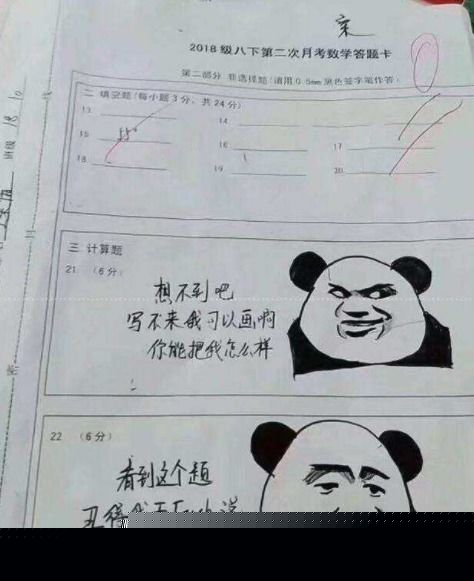 2018级八下第二次月考数学答题卡
第二部分 非选择题(请用0.5mm黑色签字笔作答)
二 填空题(每小题3分,共24分)
13
14
15 55°
16
17
18
19
20
三 计算题
21 (6分)
想不到吧
写不来我可以画啊
你能把我怎么样
22 (6分)
看到这个题